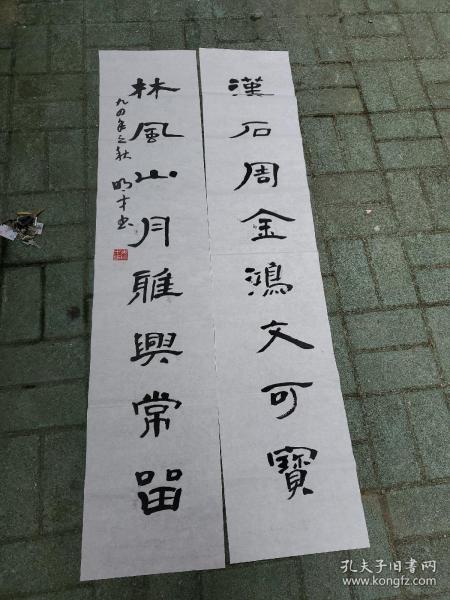 漢石周金鴻文可寶
林風山月雅興常留
九四年之秋
明才书
孔夫子旧书网
www.kongfz.com